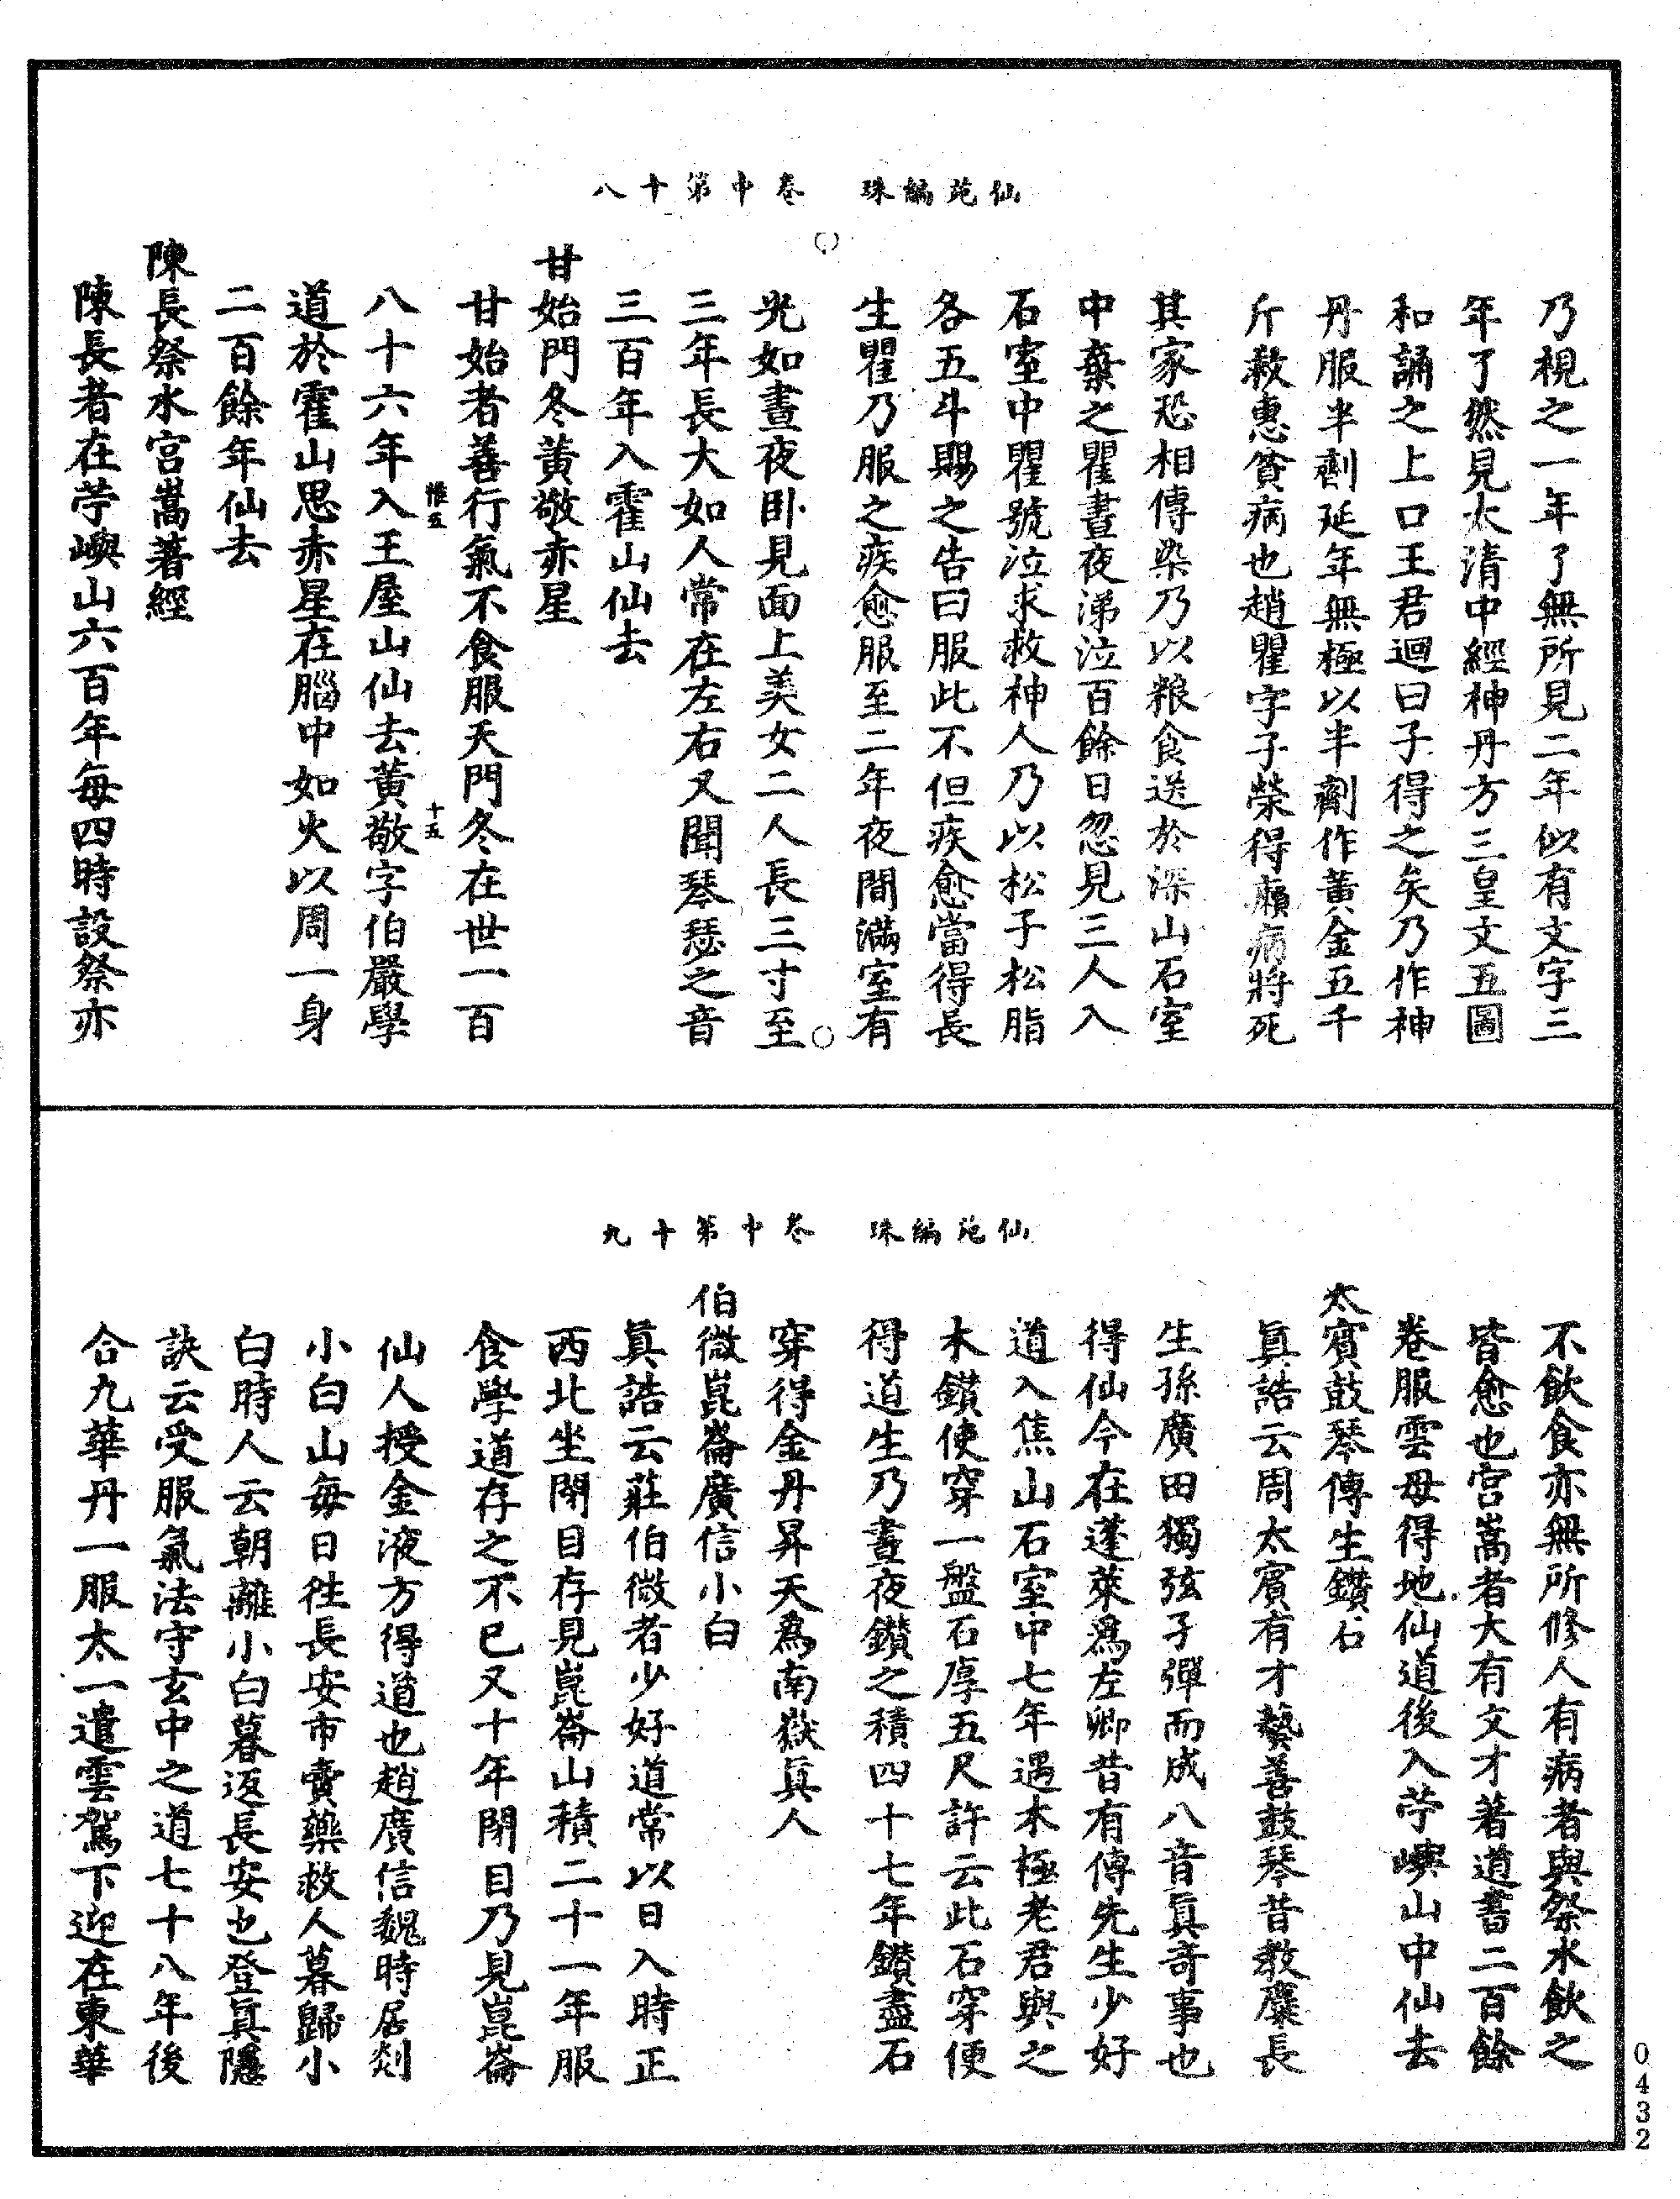 仙苑編珠　卷中第十八
乃視之一年了無所見二年似有文字三
年了然見太清中經神丹方三皇文五圖
和誦之上口王君迴曰子得之矣乃作神
丹服半劑延年無極以半劑作黃金五千
斤救惠貧病也趙瞿字子榮得癩病將死
其家恐相傳染乃以粮食送於深山石室
中棄之瞿晝夜涕泣百餘日忽見三人入
石室中瞿號泣求救神人乃以松子松脂
各五斗賜之告曰服此不但疾愈當得長
生瞿乃服之疾愈服至二年夜間滿室有
光如晝夜臥見面上美女二人長三寸至
三年長大如人常在左右又聞琴瑟之音
三百年入霍山仙去
甘始門冬黃敬赤星
甘始者善行氣不食服天門冬在世一百
惟五
十五
八十六年入王屋山仙去黃敬字伯嚴學
道於霍山思赤星在腦中如火以周一身
二百餘年仙去
陳長祭水宮嵩著經
陳長者在苧嶼山六百年每四時設祭亦
仙苑編珠　卷中第十九
不飲食亦無所修人有病者與祭水飲之
皆愈也宮嵩者大有文才著道書二百餘
卷服雲母得地仙道後入苧嶼山中仙去
太賓鼓琴傳生鑽石
眞誥云周太賓有才藝善鼓琴昔教麋長
生孫廣田獨弦子彈而成八音眞奇事也
得仙今在蓬萊爲左卿昔有傳先生少好
道入焦山石室中七年遇木極老君與之
木鑽使穿一盤石厚五尺許云此石穿便
得道生乃晝夜鑽之積四十七年鑽盡石
穿得金丹昇天爲南嶽眞人
伯微崑崙廣信小白
眞誥云莊伯微者少好道常以日入時正
西北坐閉目存見崑崙山積二十一年服
食學道存之不已又十年閉目乃見崑崙
仙人授金液方得道也趙廣信魏時居剡
小白山每日往長安市賣藥救人暮歸小
白時人云朝離小白暮返長安也登眞隱
訣云受服氣法守玄中之道七十八年後
合九華丹一服太一遣雲駕下迎在東華
0432